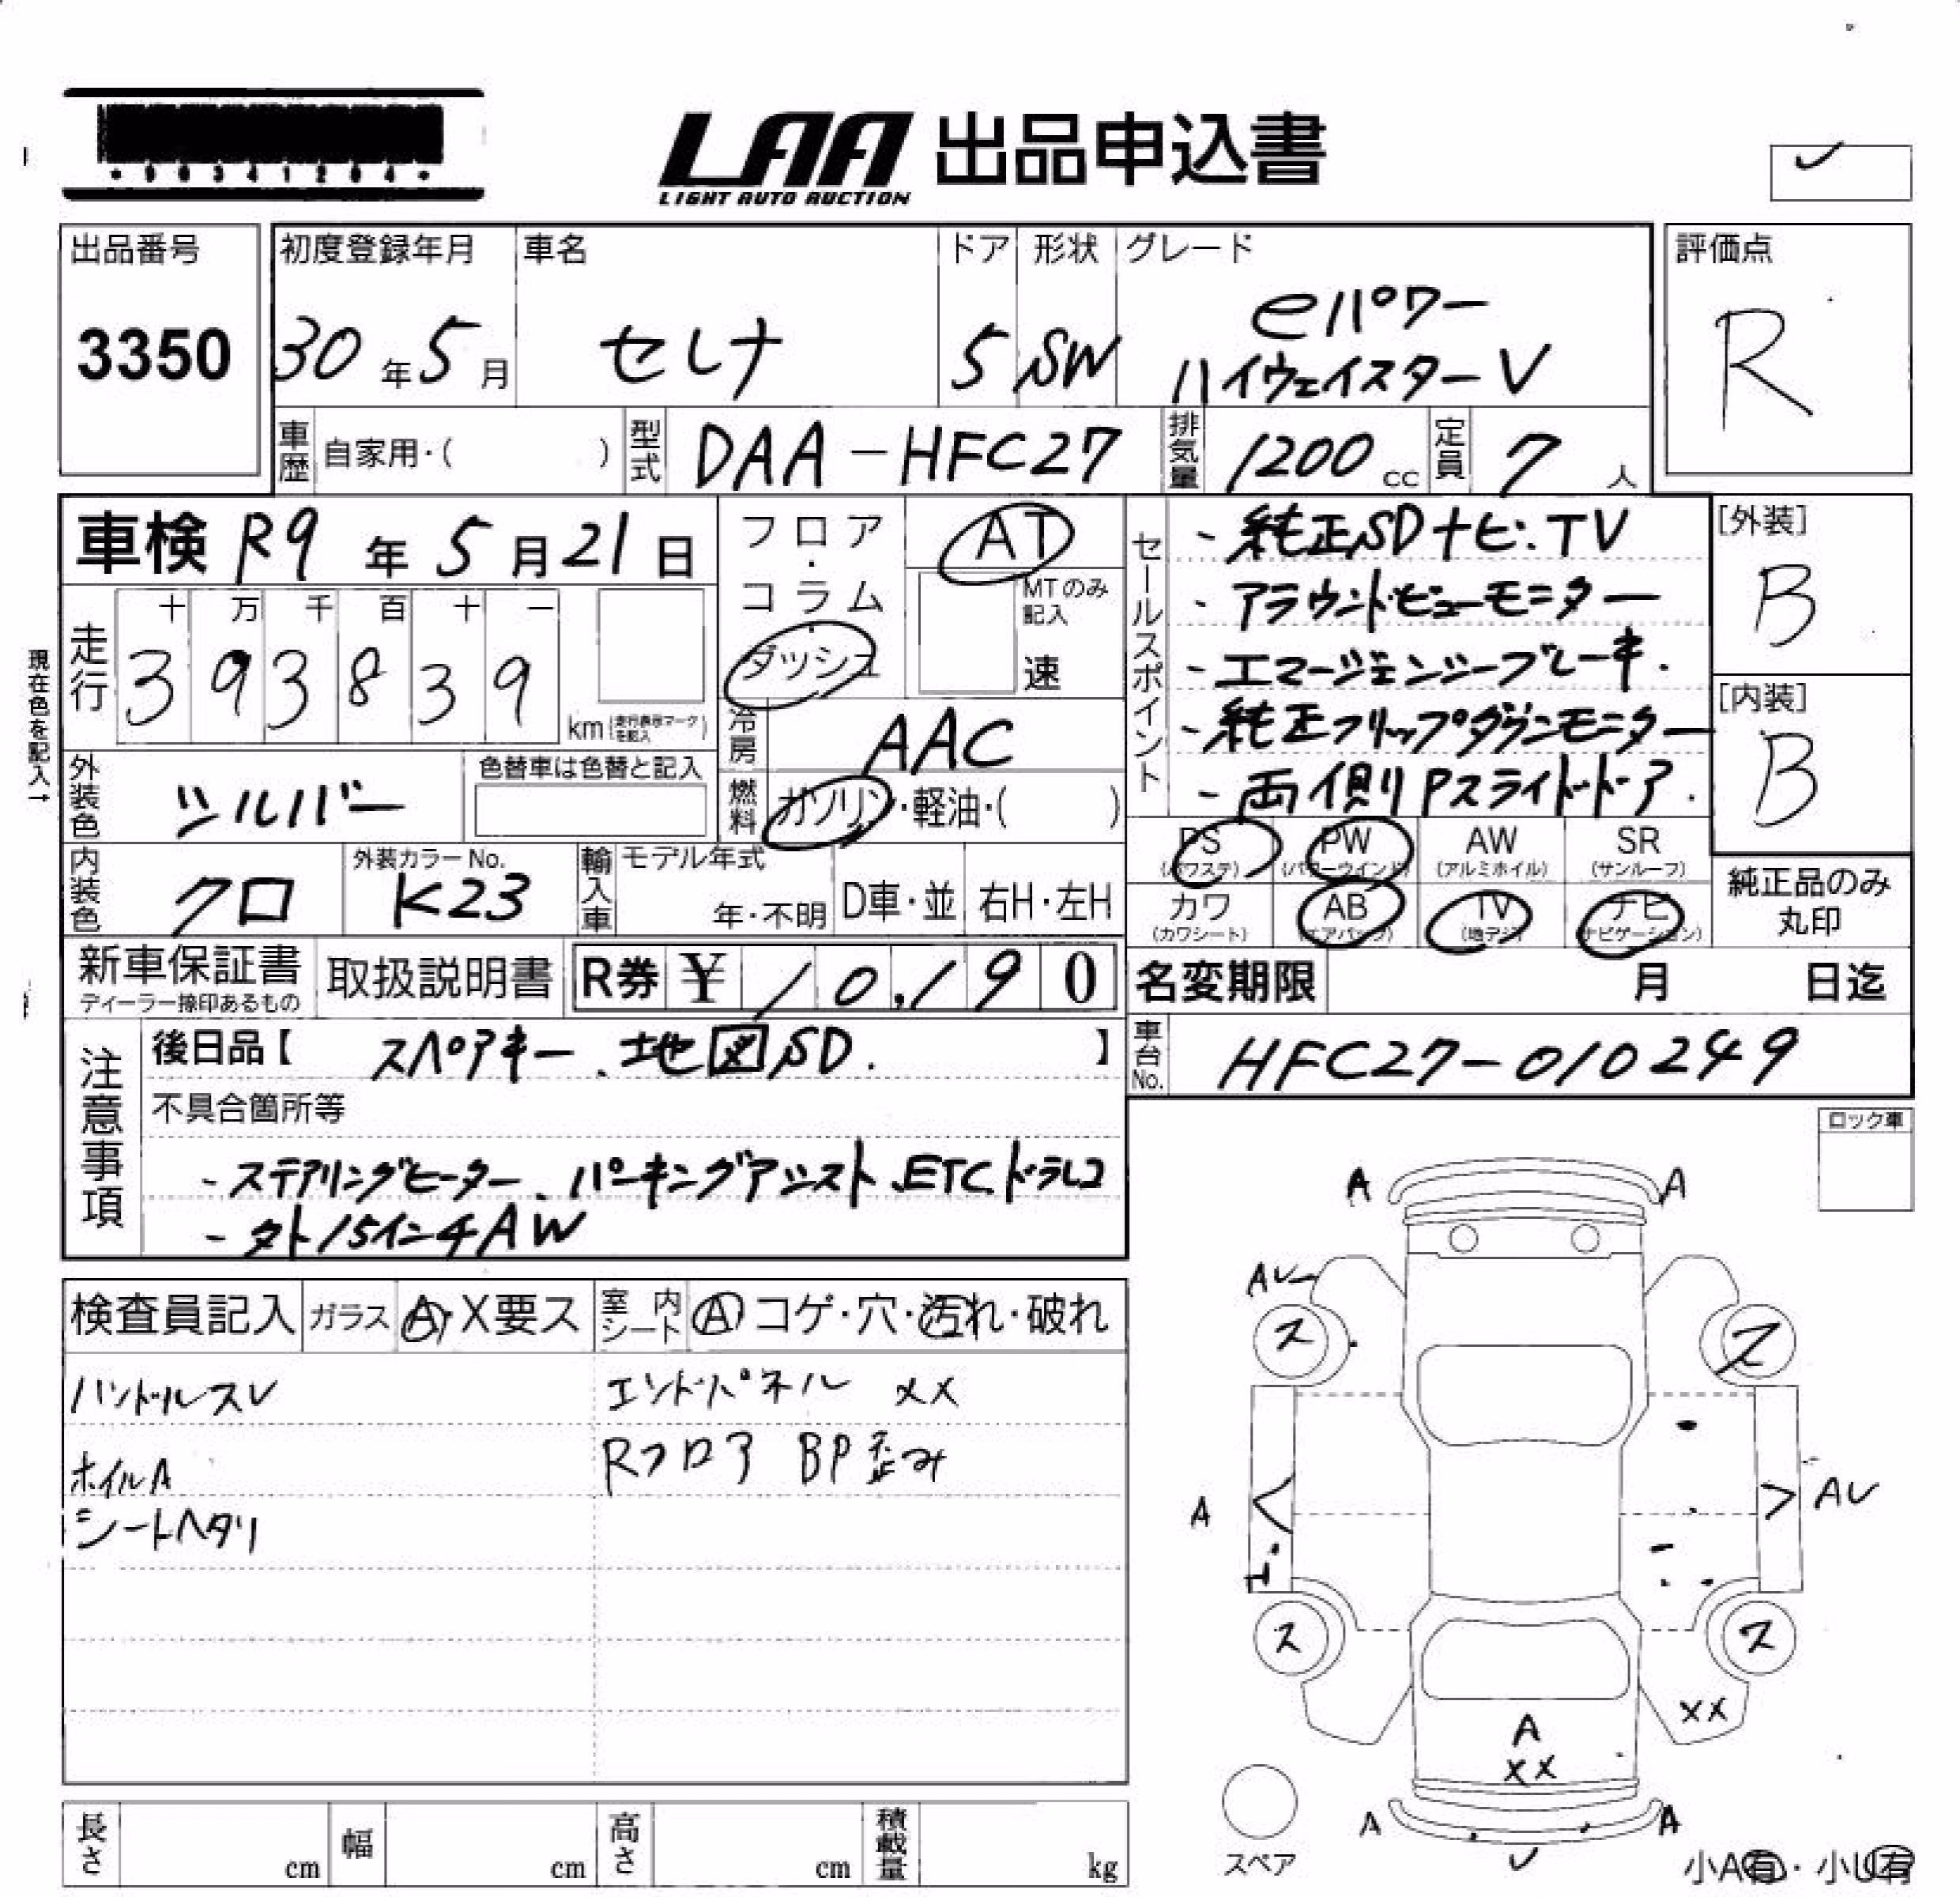 ・00341204・
LAA 出品申込書
LIGHT AUTO AUCTION
出品番号
3350
初度登録年月
30年5月
車名
セレナ
ドア
5
形状
SW
グレード
eパワー
ハイウェイスターV
評価点
R
車歴 自家用・( )
型式 DAA-HFC27
排気量 1200 cc
定員 7人
車検 R9年5月21日
現在色を記入→
走行
十 万 千 百 十 一
3 9 3 8 3 9
km(走行表示マークを記入)
フロア・コラム
ダッシュ
AT
MTのみ記入
速
冷房 AAC
燃料 ガソリン・軽油・( )
外装色 シルバー
色替車は色替と記入
内装色 クロ
外装カラーNo.
K23
輸入車 モデル年式
年・不明
D車・並
右H・左H
セールスポイント
- 純正SDナビ.TV
- アラウンドビューモニター
- エマージェンシーブレーキ.
- 純正フリップダウンモニター
- 両側Pスライドドア.
[外装]
B
[内装]
B
PS (パワステ) PW (パワーウインド) AW (アルミホイル) SR (サンルーフ)
カワ (カワシート) AB (エアバッグ) TV (地デジ) ナビ (ナビゲーション)
純正品のみ
丸印
新車保証書
ディーラー捺印あるもの
取扱説明書
R券 ¥ 10,190
名変期限 月 日迄
車台No. HFC27-010249
注意事項
後日品【 スペアキー、地図SD. 】
不具合箇所等
- ステアリングヒーター、パーキングアシスト、ETC、ドラレコ
- タト15インチAW
ロック車
検査員記入
ガラス A・X要ス
室内シート A コゲ・穴・汚れ・破れ
ハンドルスレ
エンドパネル XX
ホイルA
Rフロア BP歪み
シートヘタリ
A A
AU
ス ス
A AU
ス ス
XX
A
XX
A A
スペア
小A有・小U有
長さ cm 幅 cm 高さ cm 積載量 kg